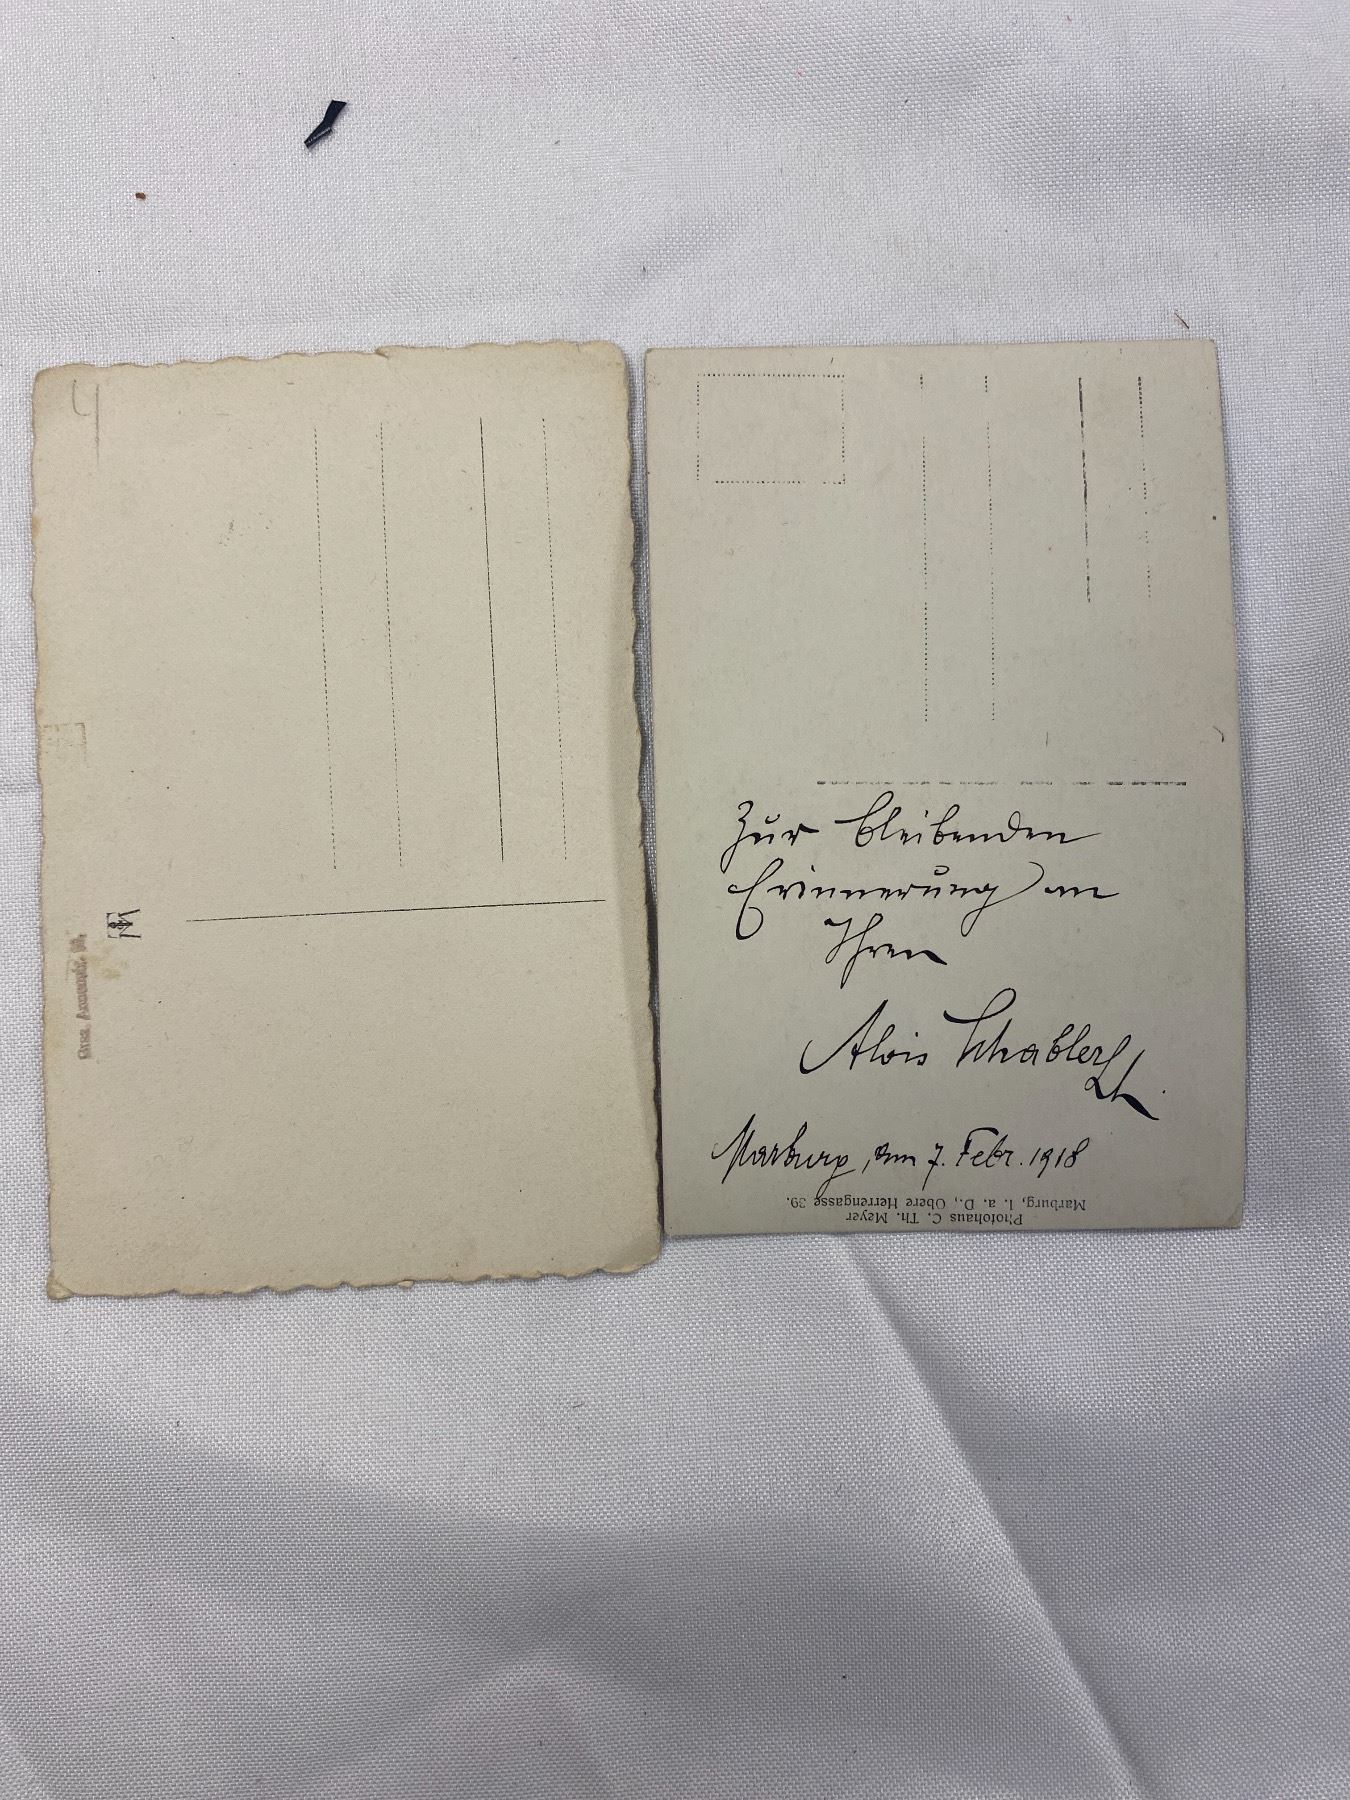 Zur bleibenden
Erinnerung an
Ihren
Alois Schabler
Marburg, am 7. Febr. 1918
Photohaus C. Th. Meyer
Marburg, l. a. D., Obere Herrengasse 39.